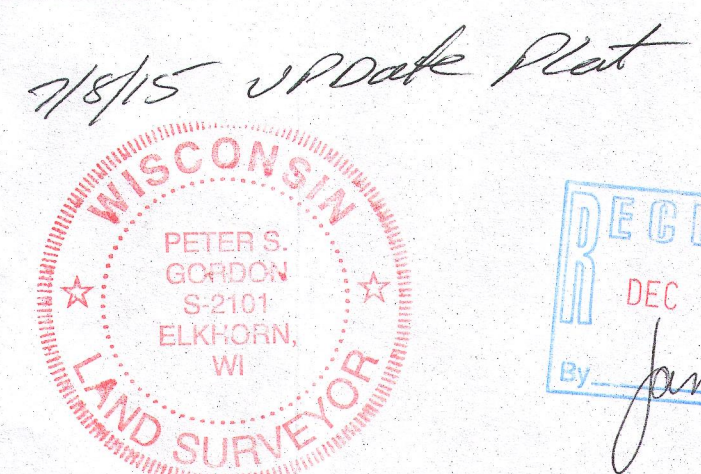 7/8/15 UPDate Plat
WISCONSIN
PETER S.
GORDON
S-2101
ELKHORN,
WI
LAND SURVEYOR
DEC
By